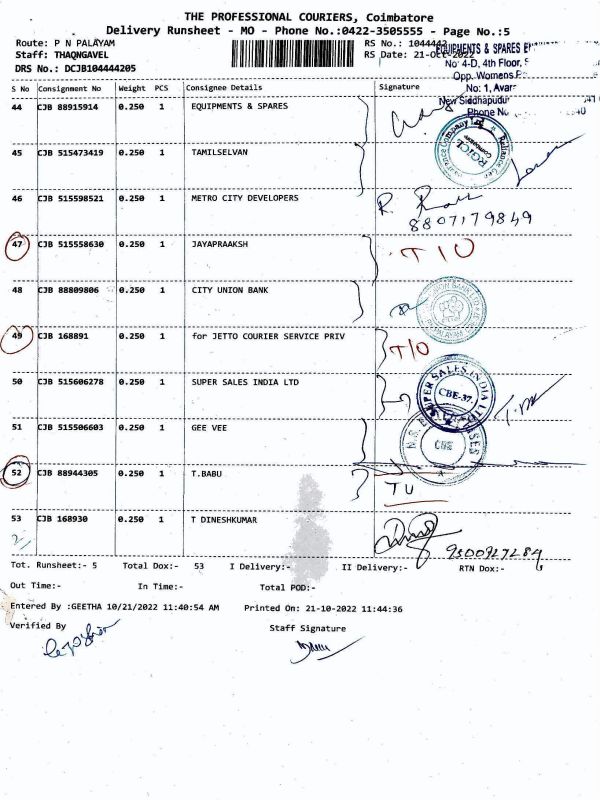 THE PROFESSIONAL COURIERS, Coimbatore
Delivery Runsheet - MO - Phone No.:0422-3505555 - Page No.:5
Route: P N PALAYAM RS No.: 1044442
Staff: THAQNGAVEL RS Date: 21-Oct-2022
DRS No.: DCJB104444205
EQUIPMENTS & SPARES
No 4-D, 4th Floor,
Opp. Womens
No: 1,
New Siddhapudur
Phone No
S No Consignment No Weight PCS Consignee Details Signature
44 CJB 88915914 0.250 1 EQUIPMENTS & SPARES
45 CJB 515473419 0.250 1 TAMILSELVAN
RGICL
46 CJB 515598521 0.250 1 METRO CITY DEVELOPERS
8807179849
47 CJB 515558630 0.250 1 JAYAPRAAKSH T/O
48 CJB 88809806 0.250 1 CITY UNION BANK
49 CJB 168891 0.250 1 for JETTO COURIER SERVICE PRIV T/O
50 CJB 515606278 0.250 1 SUPER SALES INDIA LTD
SUPER SALES INDIA LTD
CBE-37.
51 CJB 515506603 0.250 1 GEE VEE
CBE
52 CJB 88944305 0.250 1 T.BABU TU
53 CJB 168930 0.250 1 T DINESHKUMAR
Tot. Runsheet:- 5 Total Dox:- 53 I Delivery:- II Delivery:- RTN Dox:-
Out Time:- In Time:- Total POD:-
Entered By :GEETHA 10/21/2022 11:40:54 AM Printed On: 21-10-2022 11:44:36
Verified By Staff Signature